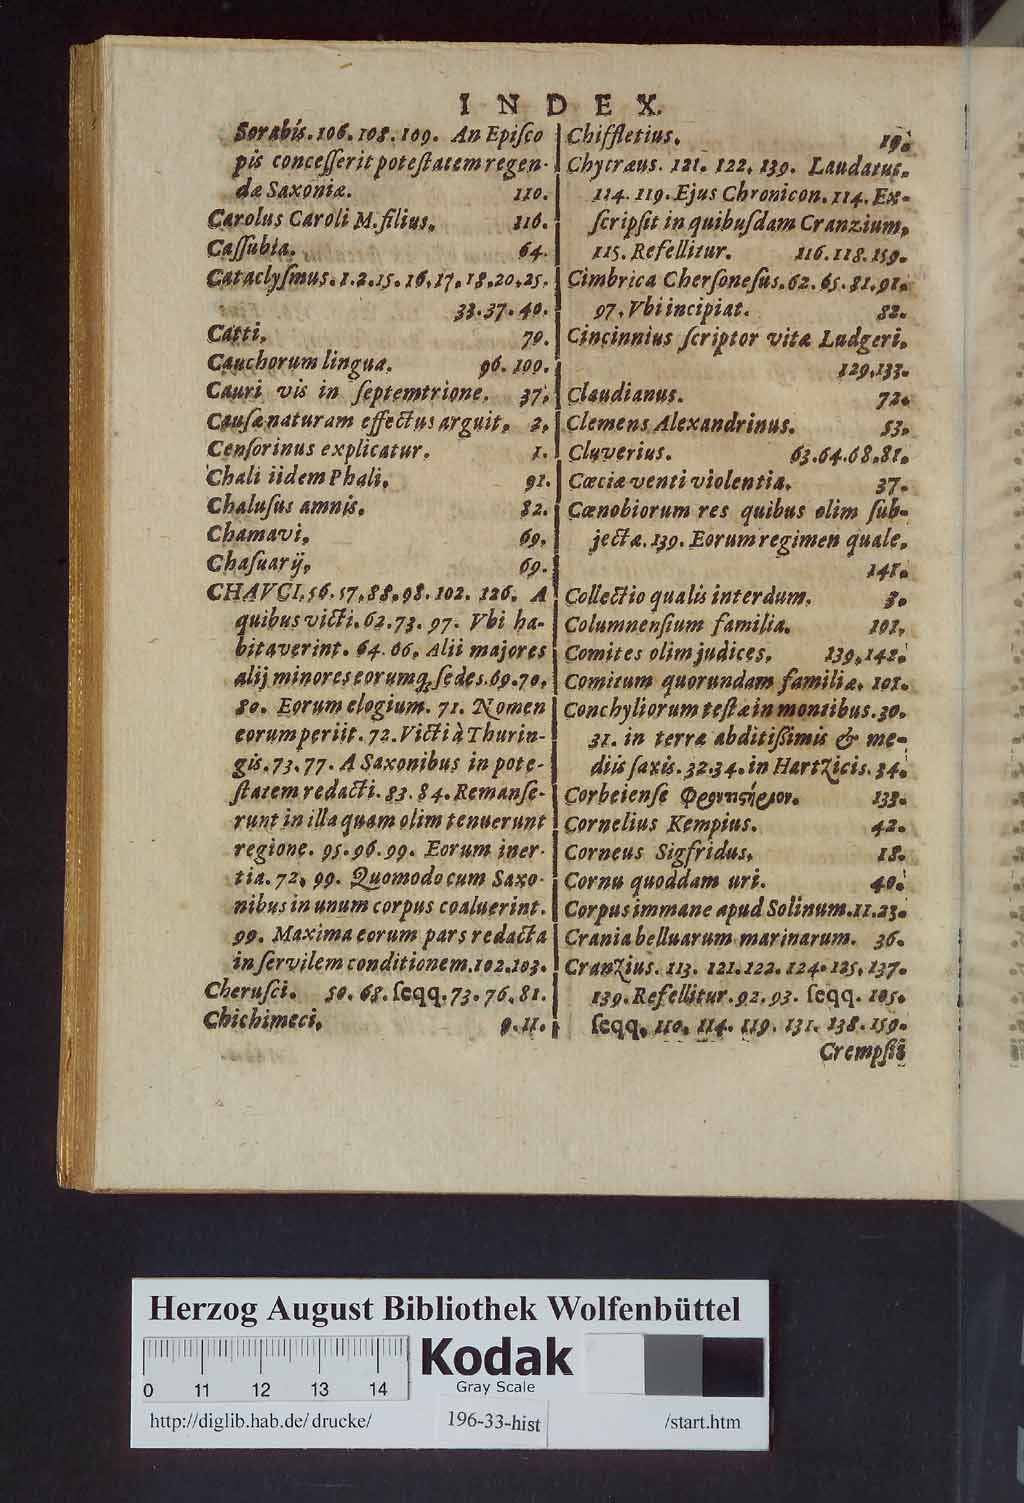 INDEX.
Sorabis. 106. 108. 109. An Episco
pis concesserit potestatem regen-
dæ Saxoniæ. 110.
Carolus Caroli M. filius. 116.
Cassubia. 64.
Cataclysmus. 1. 2. 15. 16. 17. 18. 20. 25.
33. 37. 40.
Catti. 70.
Cauchorum lingua. 96. 100.
Cauri vis in septemtrione. 37.
Causæ naturam effectus arguit. 2.
Censorinus explicatur. 1.
Chali iidem Phali. 91.
Chalusus amnis. 82.
Chamavi. 69.
Chasuarij. 69.
CHAVCI. 56. 57. 88. 98. 102. 126. A
quibus victi. 62. 73. 97. Vbi ha-
bitaverint. 64. 66. Alii majores
alij minores eorumq; sedes. 69. 70.
80. Eorum elogium. 71. Nomen
eorum periit. 72. Victi à Thurin-
gis. 73. 77. A Saxonibus in pote-
statem redacti. 83. 84. Remanse-
runt in illa quam olim tenuerunt
regione. 95. 96. 99. Eorum iner-
tia. 72. 99. Quomodo cum Saxo-
nibus in unum corpus coaluerint.
99. Maxima eorum pars redacta
in servilem conditionem. 102. 103.
Cherusci. 50. 68. seqq. 73. 76. 81.
Chichimeci. 9. 11.
Chiffletius. 19.
Chytræus. 121. 122. 139. Laudatus.
114. 119. Ejus Chronicon. 114. Ex-
scripsit in quibusdam Cranzium.
115. Refellitur. 116. 118. 159.
Cimbrica Chersonesus. 62. 65. 81. 91.
97. Vbi incipiat. 82.
Cincinnius scriptor vitæ Ludgeri.
129. 133.
Claudianus. 72.
Clemens Alexandrinus. 53.
Cluverius. 63. 64. 68. 81.
Cœciæ venti violentia. 37.
Cœnobiorum res quibus olim sub-
jectæ. 139. Eorum regimen quale.
141.
Collectio qualis interdum. 3.
Columnensium familia. 101.
Comites olim judices. 139. 142.
Comitum quorundam familiæ. 101.
Conchyliorum testæ in montibus. 30.
31. in terræ abditißimis & me-
diis saxis. 32. 34. in Hartzicis. 34.
Corbeiense Φροντιστήριον. 133.
Cornelius Kempius. 42.
Corneus Sigfridus. 18.
Cornu quoddam uri. 40.
Corpus immane apud Solinum. 11. 23.
Crania belluarum marinarum. 36.
Cranzius. 113. 121. 122. 124. 125. 137.
139. Refellitur. 92. 93. seqq. 105.
seqq. 110. 114. 119. 131. 138. 159.
Crempsis
Herzog August Bibliothek Wolfenbüttel
Kodak
Gray Scale
0 11 12 13 14
http://diglib.hab.de/drucke/ 196-33-hist /start.htm